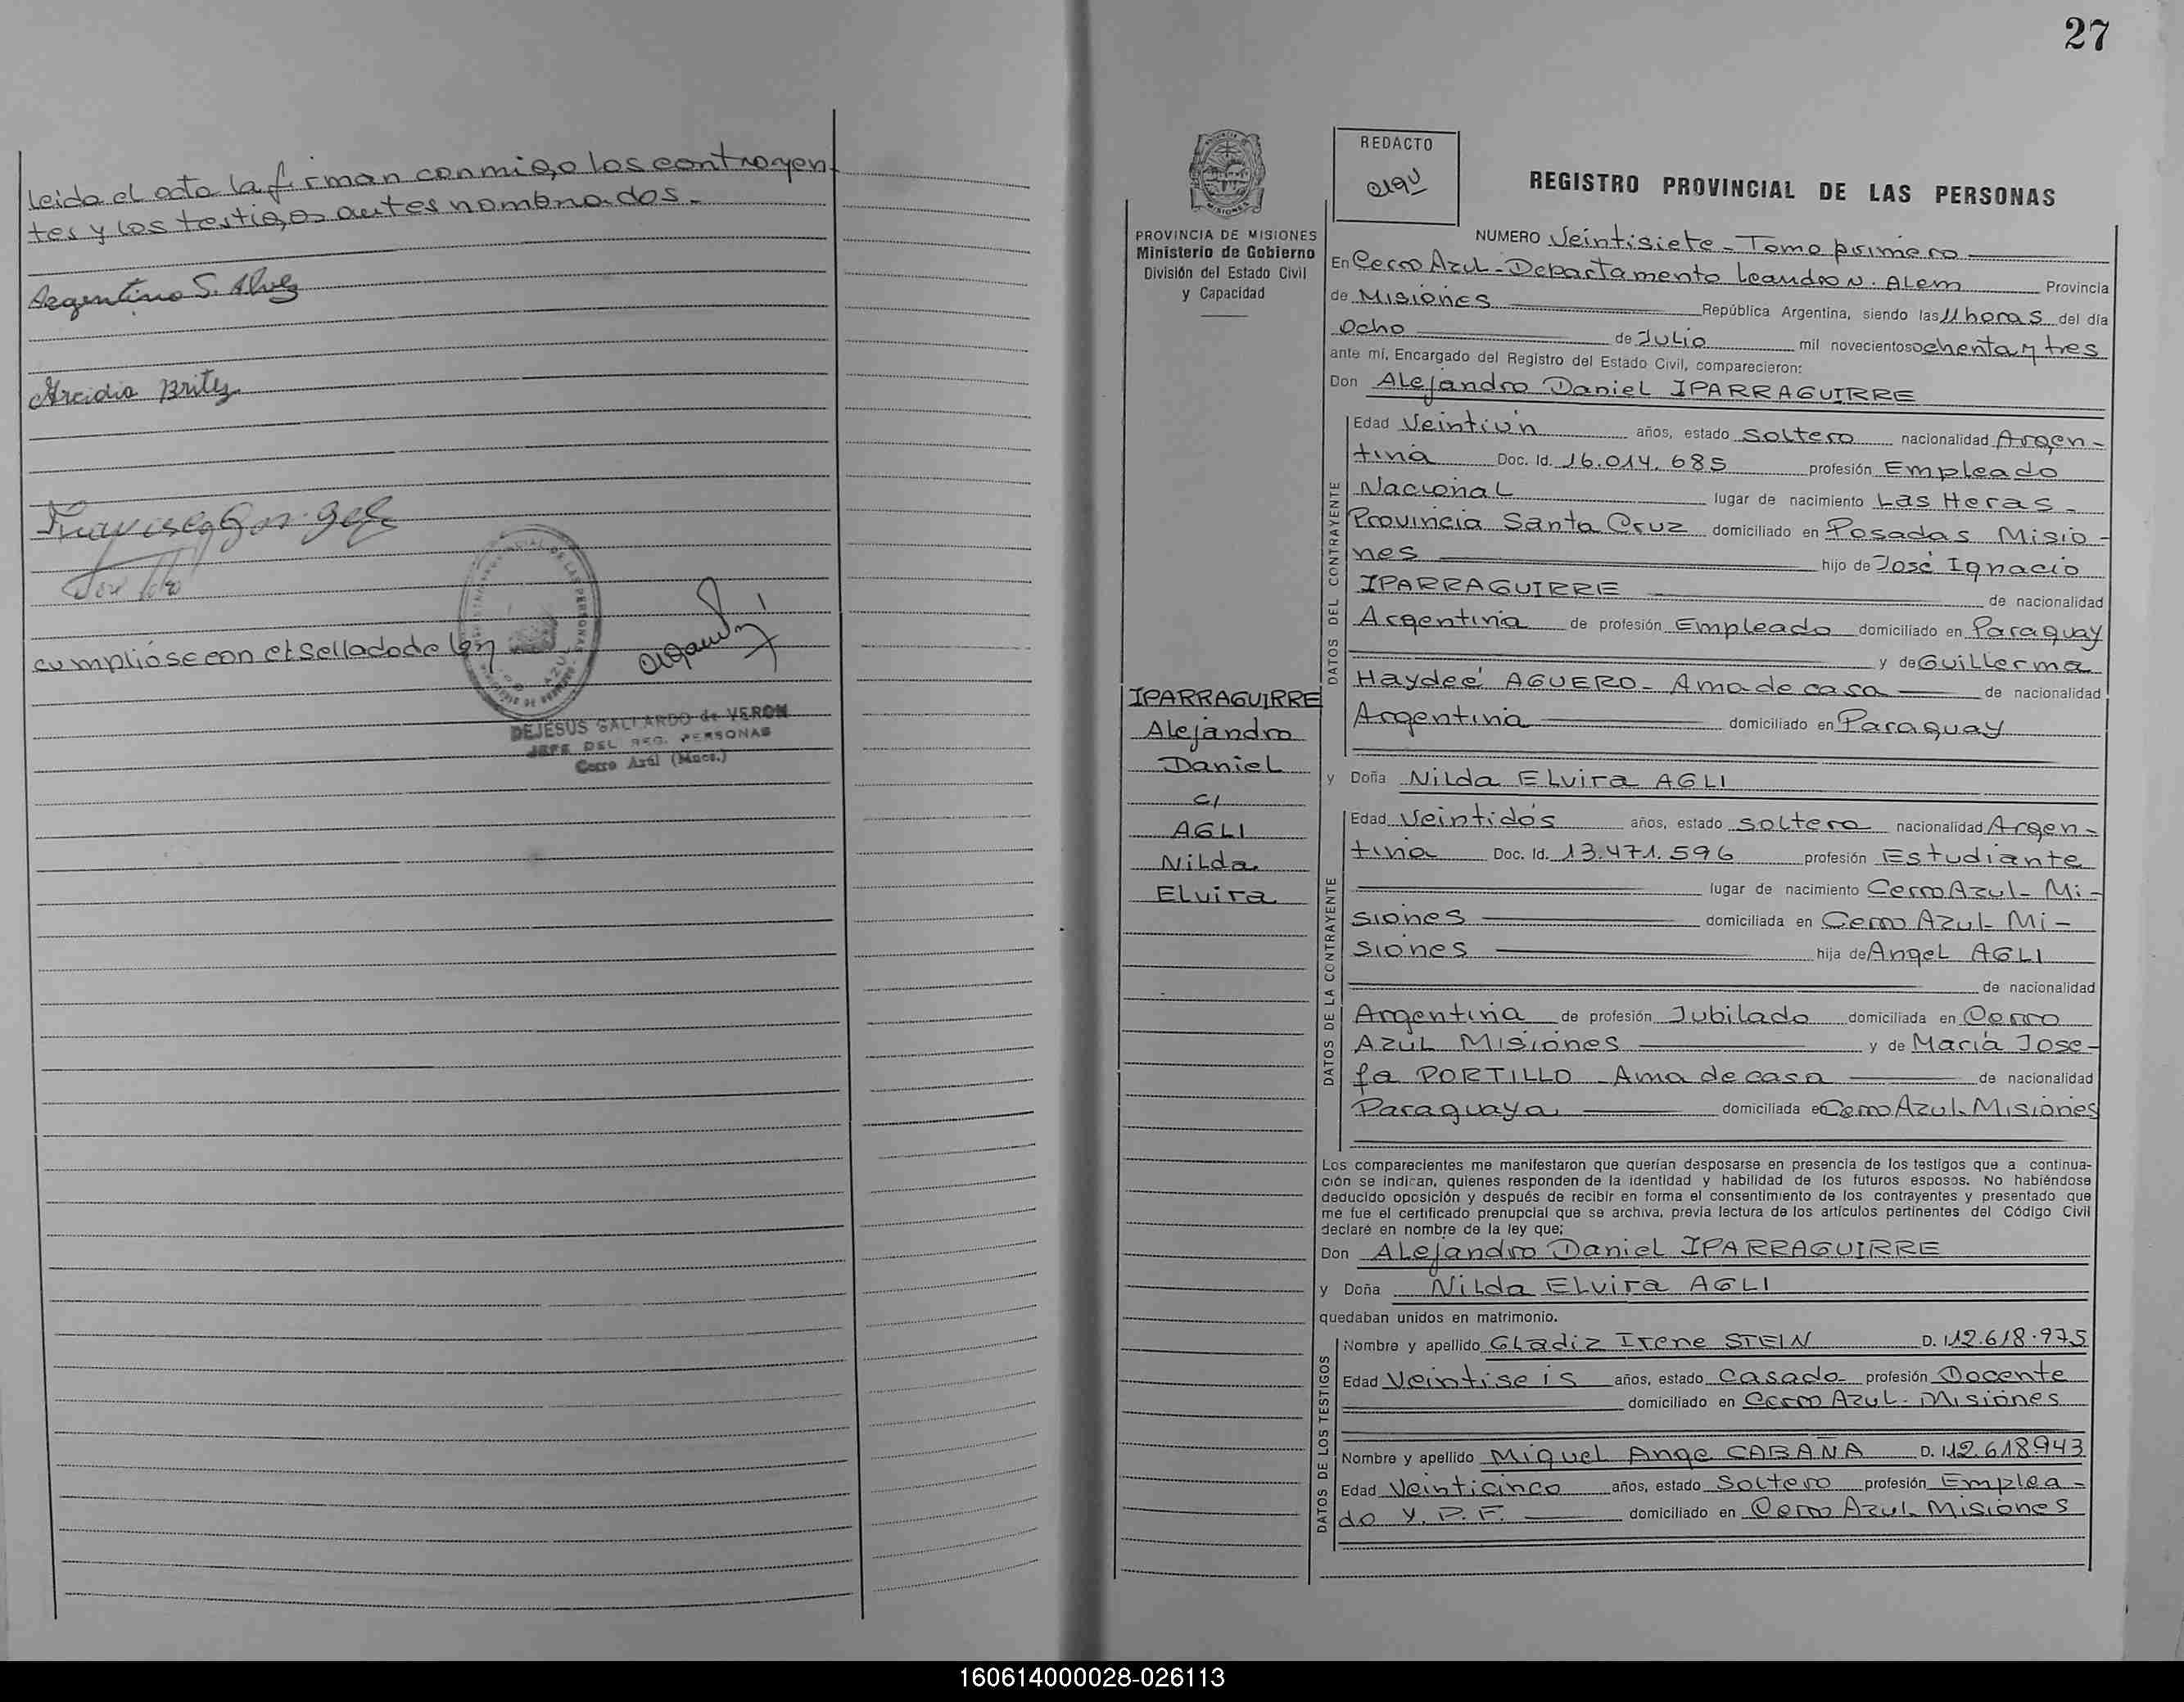 leido el acta la firman conmigo los contrayen
tes y los testigos antes nombrados.-
Argentino S. Alvez
Arcidio Britez
cumplióse con el sellado de ley
DEJESUS GALLARDO de VERON
JEFE DEL REG. PERSONAS
Cerro Azúl (Mnes.)
27
PROVINCIA DE MISIONES
Ministerio de Gobierno
División del Estado Civil
y Capacidad
IPARRAGUIRRE
Alejandro
Daniel
c/
AGLI
Nilda
Elvira
REDACTO
REGISTRO PROVINCIAL DE LAS PERSONAS
NUMERO Veintisiete - Tomo primero
En Cerro Azul - Departamento Leandro N. Alem Provincia
de Misiones República Argentina, siendo las 11 horas del día
Ocho de Julio mil novecientos ochenta y tres
ante mí, Encargado del Registro del Estado Civil, comparecieron:
Don Alejandro Daniel IPARRAGUIRRE
DATOS DEL CONTRAYENTE
Edad Veintiún años, estado soltero nacionalidad Argen-
tina Doc. Id. 16.014.685 profesión Empleado
Nacional lugar de nacimiento Las Heras -
Provincia Santa Cruz domiciliado en Posadas Misio-
nes hijo de José Ignacio
IPARRAGUIRRE de nacionalidad
Argentina de profesión Empleado domiciliado en Paraguay
y de Guillerma
Haydeé AGUERO - Ama de casa de nacionalidad
Argentina domiciliado en Paraguay
y Doña Nilda Elvira AGLI
DATOS DE LA CONTRAYENTE
Edad Veintidós años, estado soltera nacionalidad Argen-
tina Doc. Id. 13.471.596 profesión Estudiante
lugar de nacimiento Cerro Azul - Mi-
siones domiciliada en Cerro Azul Mi-
siones hija de Angel AGLI
de nacionalidad
Argentina de profesión Jubilado domiciliada en Cerro
Azul Misiones y de María Jose-
fa PORTILLO - Ama de casa de nacionalidad
Paraguaya domiciliada en Cerro Azul. Misiones
Los comparecientes me manifestaron que querían desposarse en presencia de los testigos que a continua-
ción se indican, quienes responden de la identidad y habilidad de los futuros esposos. No habiéndose
deducido oposición y después de recibir en forma el consentimiento de los contrayentes y presentado que
me fue el certificado prenupcial que se archiva, previa lectura de los artículos pertinentes del Código Civil
declaré en nombre de la ley que;
Don Alejandro Daniel IPARRAGUIRRE
y Doña Nilda Elvira AGLI
quedaban unidos en matrimonio.
DATOS DE LOS TESTIGOS
Nombre y apellido Gladiz Irene STEIN D. I. 12.618.975
Edad Veintiseis años, estado Casado profesión Docente
domiciliado en Cerro Azul - Misiones
Nombre y apellido Miguel Ange CABAÑA D. I. 12.618943
Edad Veinticinco años, estado Soltero profesión Emplea-
do Y. P. F. domiciliado en Cerro Azul. Misiones
160614000028-026113